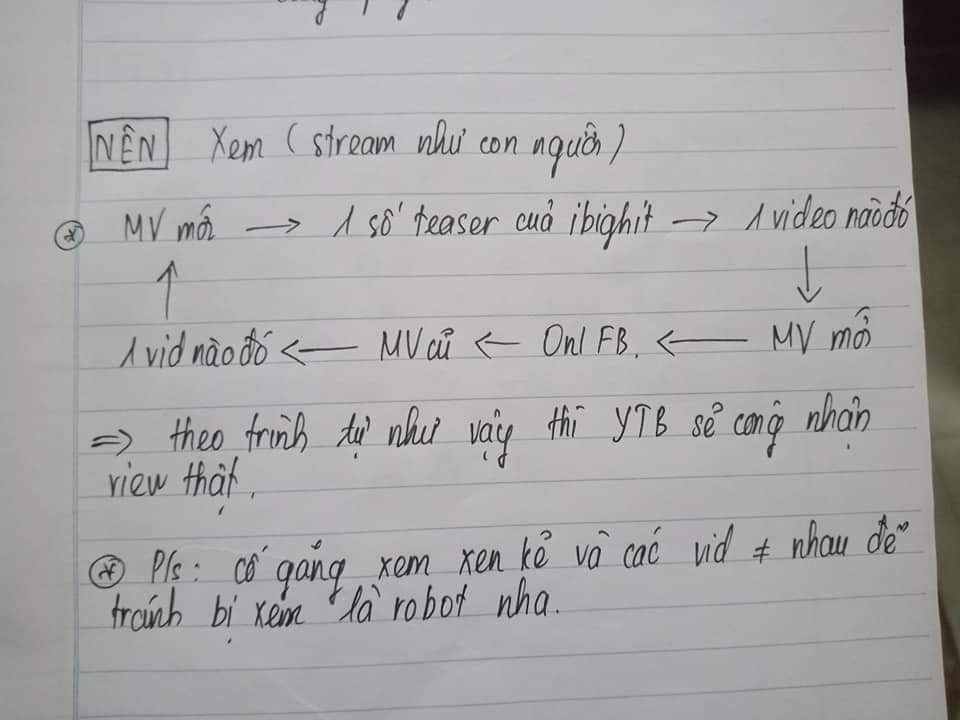 NÊN Xem (stream như con người)
* MV mới → 1 số teaser của ibighit → 1 video nào đó
↑ ↓
1 vid nào đó ← MV cũ ← Onl FB. ← MV mới
=> theo trình tự như vậy thì YTB sẽ công nhận
view thật.
* P/s: cố gắng xem xen kẽ và các vid ≠ nhau để
tránh bị xem là robot nha.